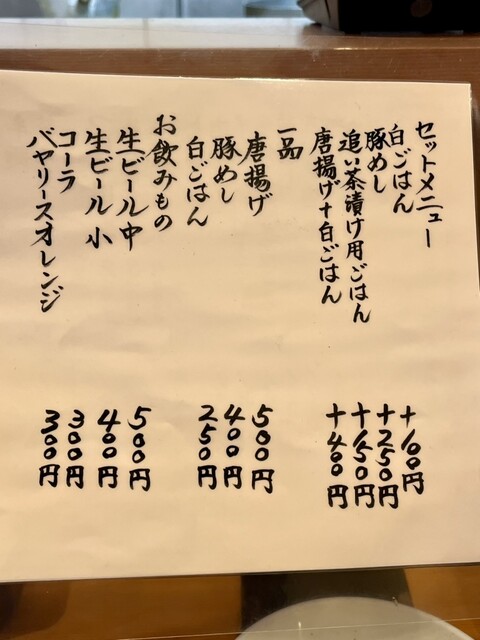 セットメニュー
白ごはん +100円
豚めし +250円
追い茶漬け用ごはん +150円
唐揚げ+白ごはん +400円
一品
唐揚げ 500円
豚めし 400円
白ごはん 250円
お飲みもの
生ビール中 500円
生ビール小 400円
コーラ 300円
バヤリースオレンジ 300円